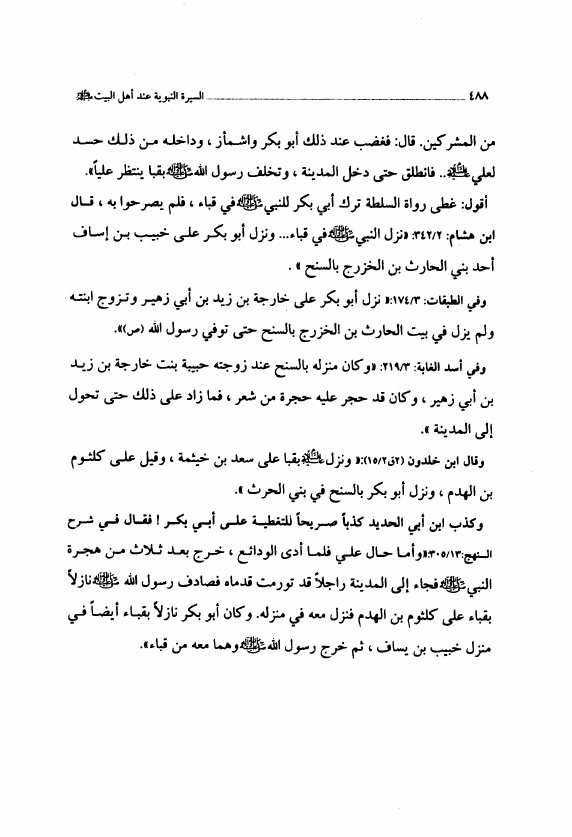 ٤٨٨ السيرة النبوية عند أهل البيت ﷺ
من المشركين. قال: فغضب عند ذلك أبو بكر واشمأز ، وداخله من ذلك حسد
لعلي عليه السلام.. فانطلق حتى دخل المدينة ، وتخلف رسول الله ﷺ بقبا ينتظر علياً».
أقول: غطى رواة السلطة ترك أبي بكر للنبي ﷺ في قباء ، فلم يصرحوا به ، قال
ابن هشام: ٣٤٢/٢: «نزل النبي ﷺ في قباء... ونزل أبو بكر على خبيب بن إساف
أحد بني الحارث بن الخزرج بالسنح » .
وفي الطبقات: ١٧٤/٣:« نزل أبو بكر على خارجة بن زيد بن أبي زهير وتزوج ابنته
ولم يزل في بيت الحارث بن الخزرج بالسنح حتى توفي رسول الله (ص)».
وفي أسد الغابة: ٢١٩/٣: «وكان منزله بالسنح عند زوجته حبيبة بنت خارجة بن زيد
بن أبي زهير ، وكان قد حجر عليه حجرة من شعر ، فما زاد على ذلك حتى تحول
إلى المدينة ».
وقال ابن خلدون (٢ق١٥/٢):« ونزل عليه السلام بقبا على سعد بن خيثمة ، وقيل على كلثوم
بن الهدم ، ونزل أبو بكر بالسنح في بني الحرث ».
وكذب ابن أبي الحديد كذباً صريحاً للتغطية على أبي بكر ! فقال في شرح
النهج: ٣٠٥/١٣:«وأما حال علي فلما أدى الودائع ، خرج بعد ثلاث من هجرة
النبي ﷺ فجاء إلى المدينة راجلاً قد تورمت قدماه فصادف رسول الله ﷺ نازلاً
بقباء على كلثوم بن الهدم فنزل معه في منزله. وكان أبو بكر نازلاً بقباء أيضاً في
منزل خبيب بن يساف ، ثم خرج رسول الله ﷺ وهما معه من قباء».